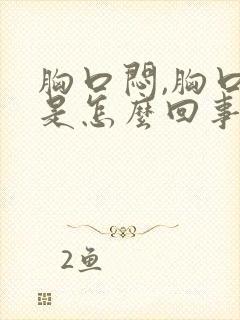 胸口悶,胸口
是怎麼回事
2鱼